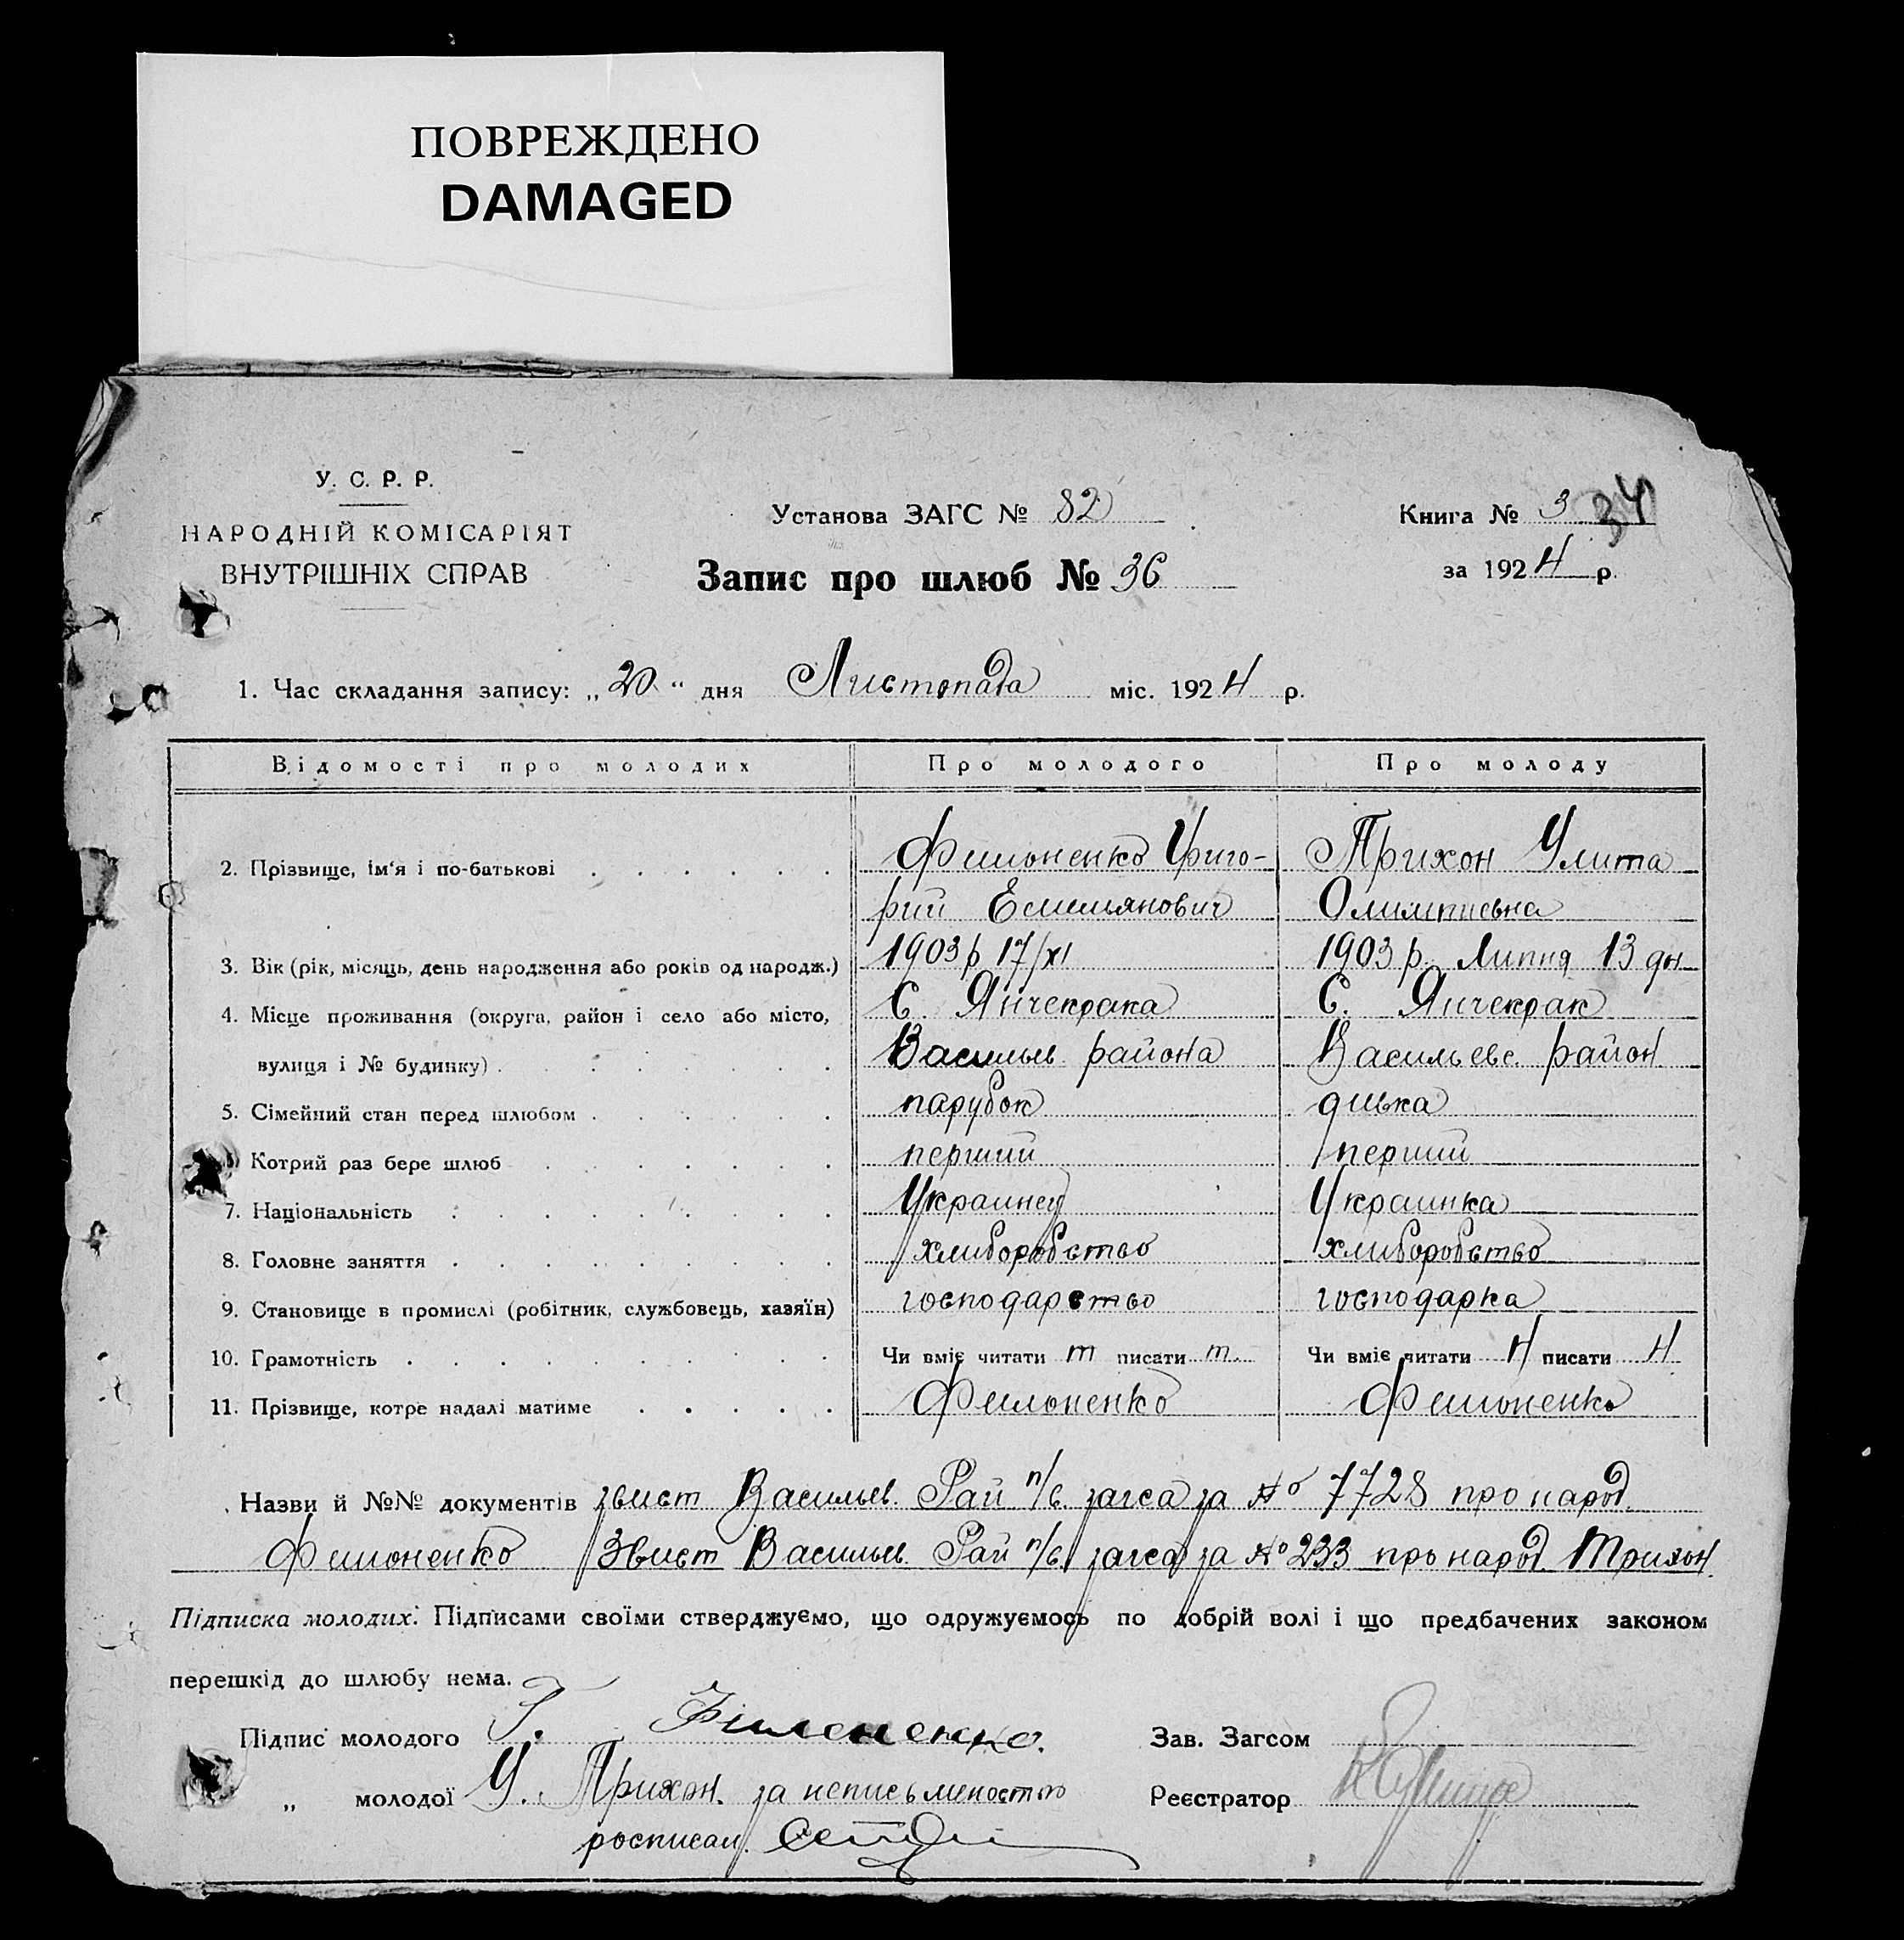 ПОВРЕЖДЕНО
DAMAGED
У. С. Р. Р.
НАРОДНІЙ КОМІСАРІЯТ
ВНУТРІШНІХ СПРАВ
Установа ЗАГС № 82
Запис про шлюб № 36
Книга № 3 34
за 1924 р.
1. Час складання запису: „20" дня Листопада міс. 1924 р.
Відомості про молодих Про молодого Про молоду
2. Прізвище, ім'я і по-батькові Филоненко Григо- Трихон Улита
рий Емельянович Олимпиевна
3. Вік (рік, місяць, день народження або років од народж.) 1903 р 17/XI 1903 р. Липня 13 дн
4. Місце проживання (округа, район і село або місто, С. Янчекрака С. Янчекрак
вулиця і № будинку) Васильев. района Васильевс. район
5. Сімейний стан перед шлюбом парубок дивка
Котрий раз бере шлюб перший перший
7. Національність Украинец Украинка
8. Головне заняття хлиборобство хлиборобство
9. Становище в промислі (робітник, службовець, хазяїн) господарство господарка
10. Грамотність Чи вміє читати т писати т. Чи вміє читати Н писати Н
11. Прізвище, котре надалі матиме Филоненко Филоненко
Назви й №№ документів звист Васильев. Рай п/в. загса за № 7728 про народ.
Филоненко Звист Васильев. Рай п/в. загса за № 233 про народ. Трихон.
Підписка молодих: Підписами своїми стверджуємо, що одружуємось по добрій волі і що предбачених законом
перешкід до шлюбу нема.
Підпис молодого Г. Філоненко. Зав. Загсом
„ молодої У. Трихон. за неписьменостью Реєстратор
росписал.